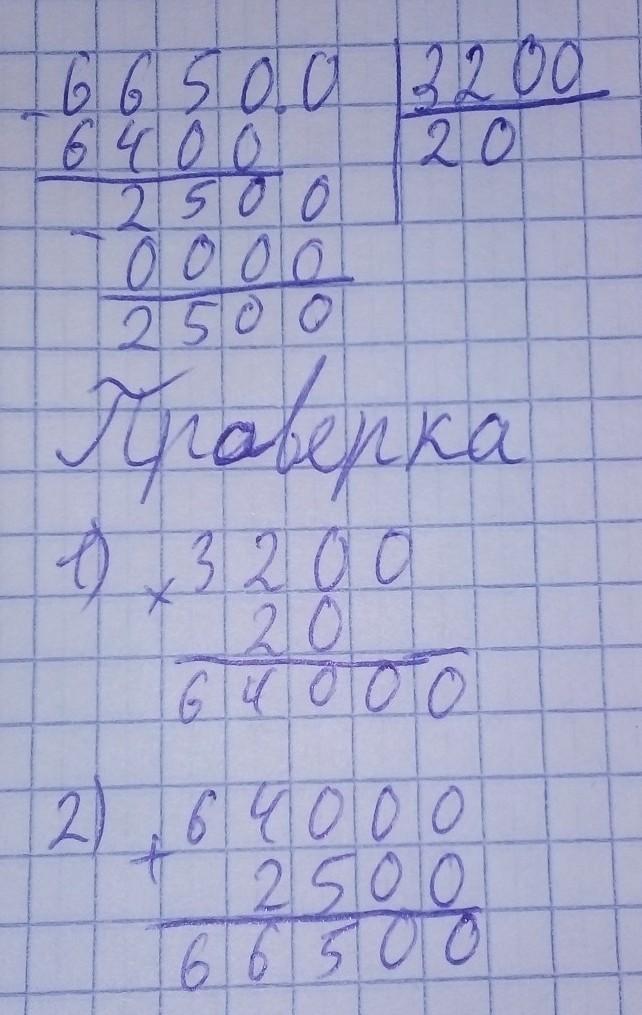 - 6 6 5 0.0 | 3200
6 4 0 0 | 2 0
- 2 5 0 0
0 0 0 0
2 5 0 0
Праверка
1) × 3 2 0 0
2 0
6 4 0 0 0
2) + 6 4 0 0 0
2 5 0 0
6 6 5 0 0